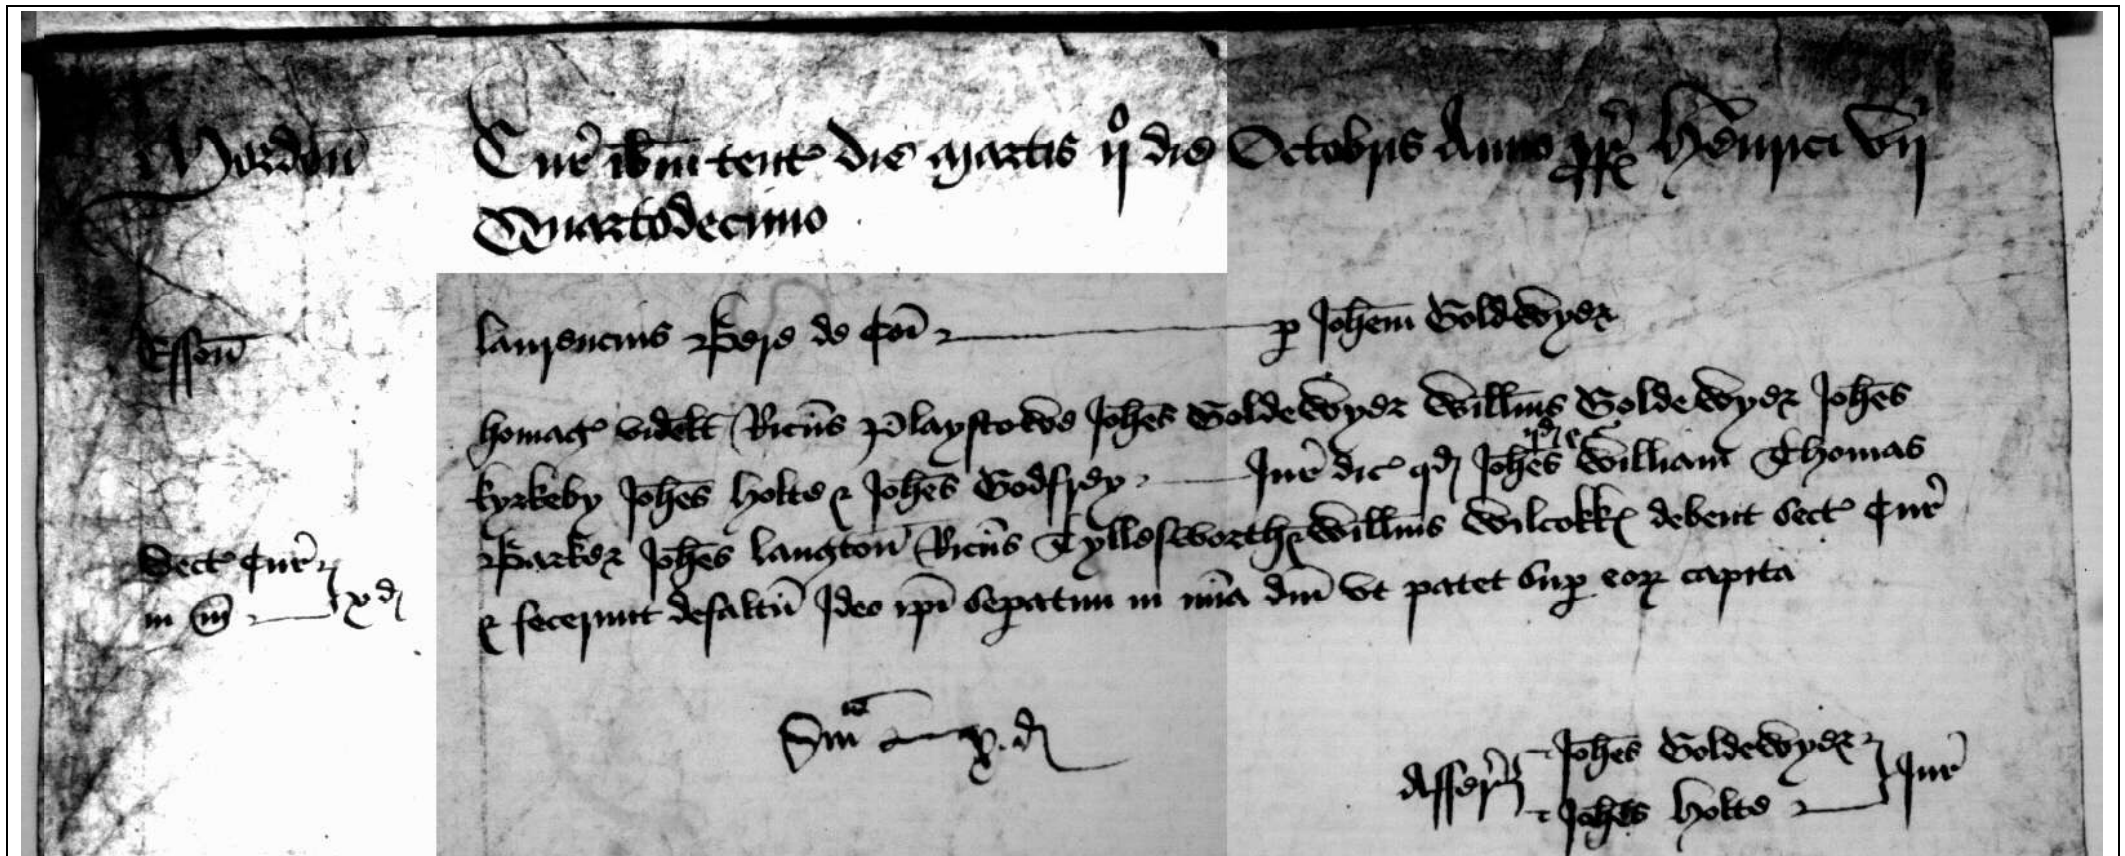 Mordon Cur ibm tent die martis ij° die Octobris Anno rr Henrici vij
Quartodecimo
Esson laurencius Pere de coi p Johem Goldwyer
homag videlt Ricus Playstowe Johes Goldewyer Willms Goldewyer Johes
kyrkeby Johes holte & Johes Godfrey Jur dic qd Johes William Thomas
Parker Johes langton Ricus Tyllesworth & Willms Wilcokk debent sect Cur
Sect Cur
& fecerunt defaltu Ideo ipi sepatim in mia dni vt patet sup eor capita
in m xd
Sm x.d
Affer Johes Goldewyer Jur
Johes holte